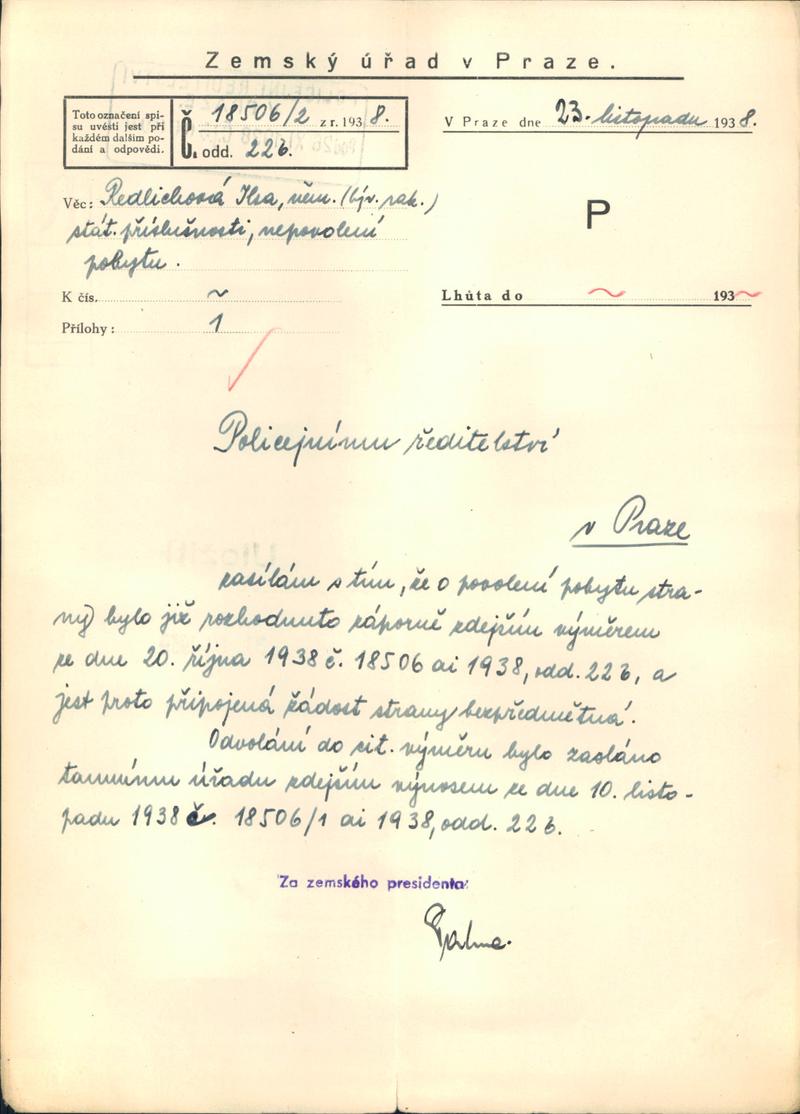 Zemský úřad v Praze.
Toto označení spi-
su uvésti jest při
každém dalším po-
dání a odpovědi.
Č. 18506/2 z r. 1938.
odd. 22b.
V Praze dne 23. listopadu 1938.
Věc: Redlichová Ilsa, něm. (býv. rak.)
stát. příslušnosti, nepovolení
pobytu.
P
K čís. ~
Lhůta do ~ 193~
Přílohy: 1
Policejnímu ředitelství
v Praze
zasílám s tím, že o povolení pobytu stra-
ny bylo již rozhodnuto záporně zdejším výměrem
ze dne 20. října 1938 č. 18506 ai 1938, odd. 22 b, a
jest proto připojená žádost strany bezpředmětná.
Odvolání do cit. výměru bylo zasláno
tamnímu úřadu zdejším výnosem ze dne 10. listo-
padu 1938 č. 18506/1 ai 1938, odd. 22 b.
Za zemského presidenta: